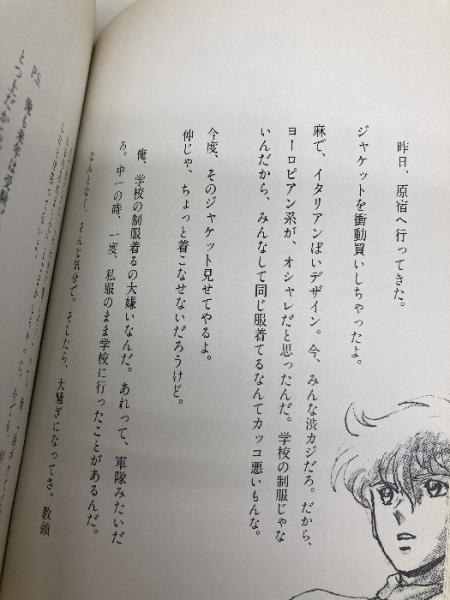 昨日、原宿へ行ってきた。
ジャケットを衝動買いしちゃったよ。
麻で、イタリアンぽいデザイン。今、みんな渋カジだろ。だから、
ヨーロピアン系が、オシャレだと思ったんだ。学校の制服じゃな
いんだから、みんなして同じ服着てるなんてカッコ悪いもんな。
今度、そのジャケット見せてやるよ。
伸じゃ、ちょっと着こなせないだろうけど。
俺、学校の制服着るの大嫌いなんだ。あれって、軍隊みたいだ
ろ。中一の時、一度、私服のまま学校に行ったことがあるんだ。
なんとなく、そんな気分で。そしたら、大騒ぎになってさ。教頭
PS. 俺も来年は受験